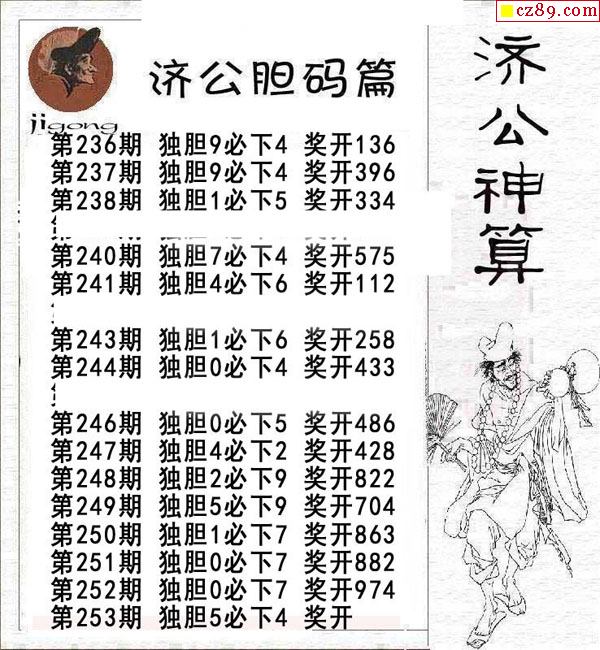 cz89.com
济公胆码篇
jigong
第236期 独胆9必下4 奖开136
第237期 独胆9必下4 奖开396
第238期 独胆1必下5 奖开334
第240期 独胆7必下4 奖开575
第241期 独胆4必下6 奖开112
第243期 独胆1必下6 奖开258
第244期 独胆0必下4 奖开433
第246期 独胆0必下5 奖开486
第247期 独胆4必下2 奖开428
第248期 独胆2必下9 奖开822
第249期 独胆5必下9 奖开704
第250期 独胆1必下7 奖开863
第251期 独胆0必下7 奖开882
第252期 独胆0必下7 奖开974
第253期 独胆5必下4 奖开
济公神算